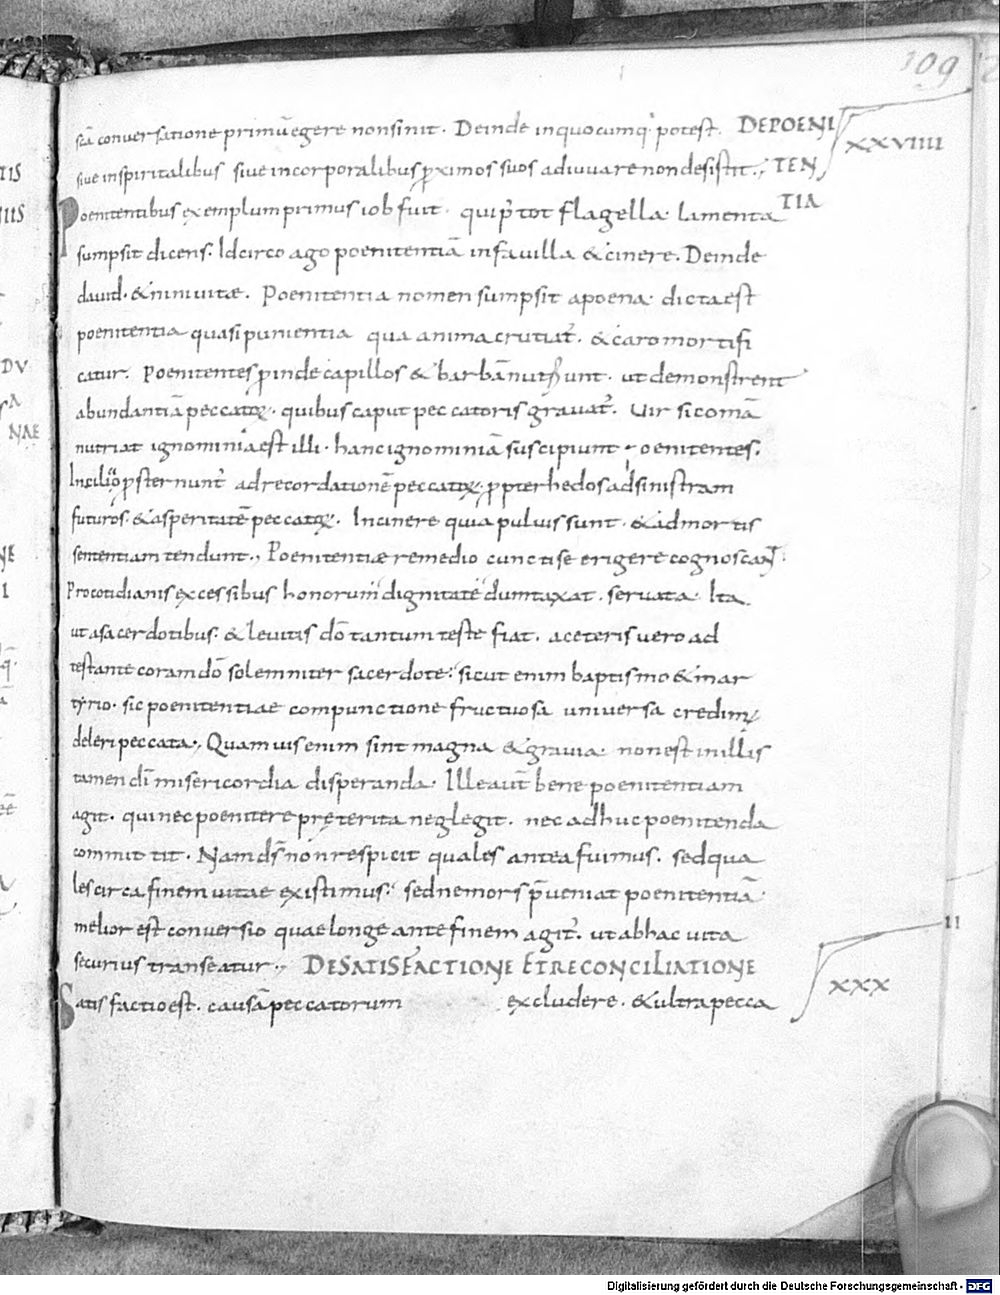 109
scā conversatione primū egere nonsinit. Deinde inquocumq; potest. DEPOENI XXVIIII
sive inspiritalibus sive incorporalibus ꝓximos suos adiuvare nondesistit., TEN
Poenitentibus exemplum primus iob fuit. qui p̄ tot flagella lamenta TIA
sumpsit dicens. Idcirco ago poenitentiā infavilla & cinere. Deinde
david. & ninivitæ. Poenitentia nomen sumpsit apoena. dicta est
poenitentia quasi punientia qua anima cruciat̄. & caro mortifi
catur. Poenitentes ꝓinde capillos & barbā nutriunt. ut demonstrent
abundantiā peccatoꝝ. quibus caput peccatoris gravat̄. Vir si comā
nutriat ignominia est illi. hanc ignominiā suscipiunt poenitentes.
Incilicio ꝓsternunt̄ ad recordationē peccatoꝝ. ꝓpter hedos adsinistram
futuros. & asperitatē peccatoꝝ. Incinere quia pulvis sunt. & admortis
sententiam tendunt., Poenitentiæ remedio cuncti se erigere cognoscant.
Procotidianis excessibus honorum dignitate dumtaxat. servata. Ita
ut a sacerdotibus. & levitis dō tantum teste fiat. aceteris vero ad
testante coram dō solemniter sacerdote. sicut enim baptismo & mar
tyrio. sic poenitentiae compunctione fructuosa universa credimꝰ
deleri peccata., Quamvis enim sint magna & gravia. non est in illis
tamen dī misericordia disperanda. Ille aut̄ bene poenitentiam
agit. qui nec poenitere pręterita neglegit. nec adhuc poenitenda
committit. Nam ds̄ non respicit quales antea fuimus. sed qua
les circa finem vitae existimus. sed ne mors p̄veniat poenitentiā.
melior est conversio quae longe ante finem agit̄. ut abhac vita
securius transeatur., DE SATISFACTIONE ET RECONCILIATIONE II
Satisfactio est. causā peccatorum excludere. & ultra pecca XXX
Digitalisierung gefördert durch die Deutsche Forschungsgemeinschaft - DFG